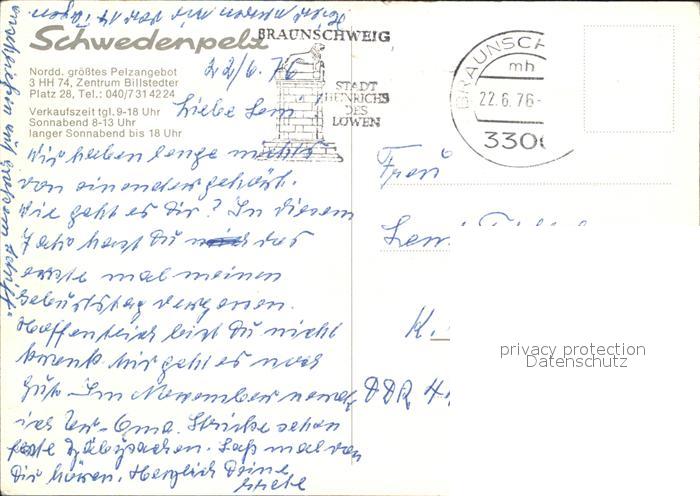 Schwedenpelz
Nordd. größtes Pelzangebot
3 HH 74, Zentrum Billstedter
Platz 28, Tel.: 040/7314224
Verkaufszeit tgl. 9-18 Uhr
Sonnabend 8-13 Uhr
langer Sonnabend bis 18 Uhr
BRAUNSCHWEIG
STADT
HEINRICHS
DES
LÖWEN
BRAUNSCH
mh
22.6.76-
3300
22/6. 76
Liebe
Wir haben lange nichts
von einander gehört.
Wie geht es Dir? In diesem
Jahr hast Du das
erste mal meinen
Geburtstag vergessen.
Hoffentlich bist Du nicht
krank mir geht es noch
gut. Im November werde
ich Ur-Oma. Stricke schon
feste Babysachen. Laß mal von
Dir hören. Herzlich Deine
Frau
K.
DDR
privacy protection
Datenschutz